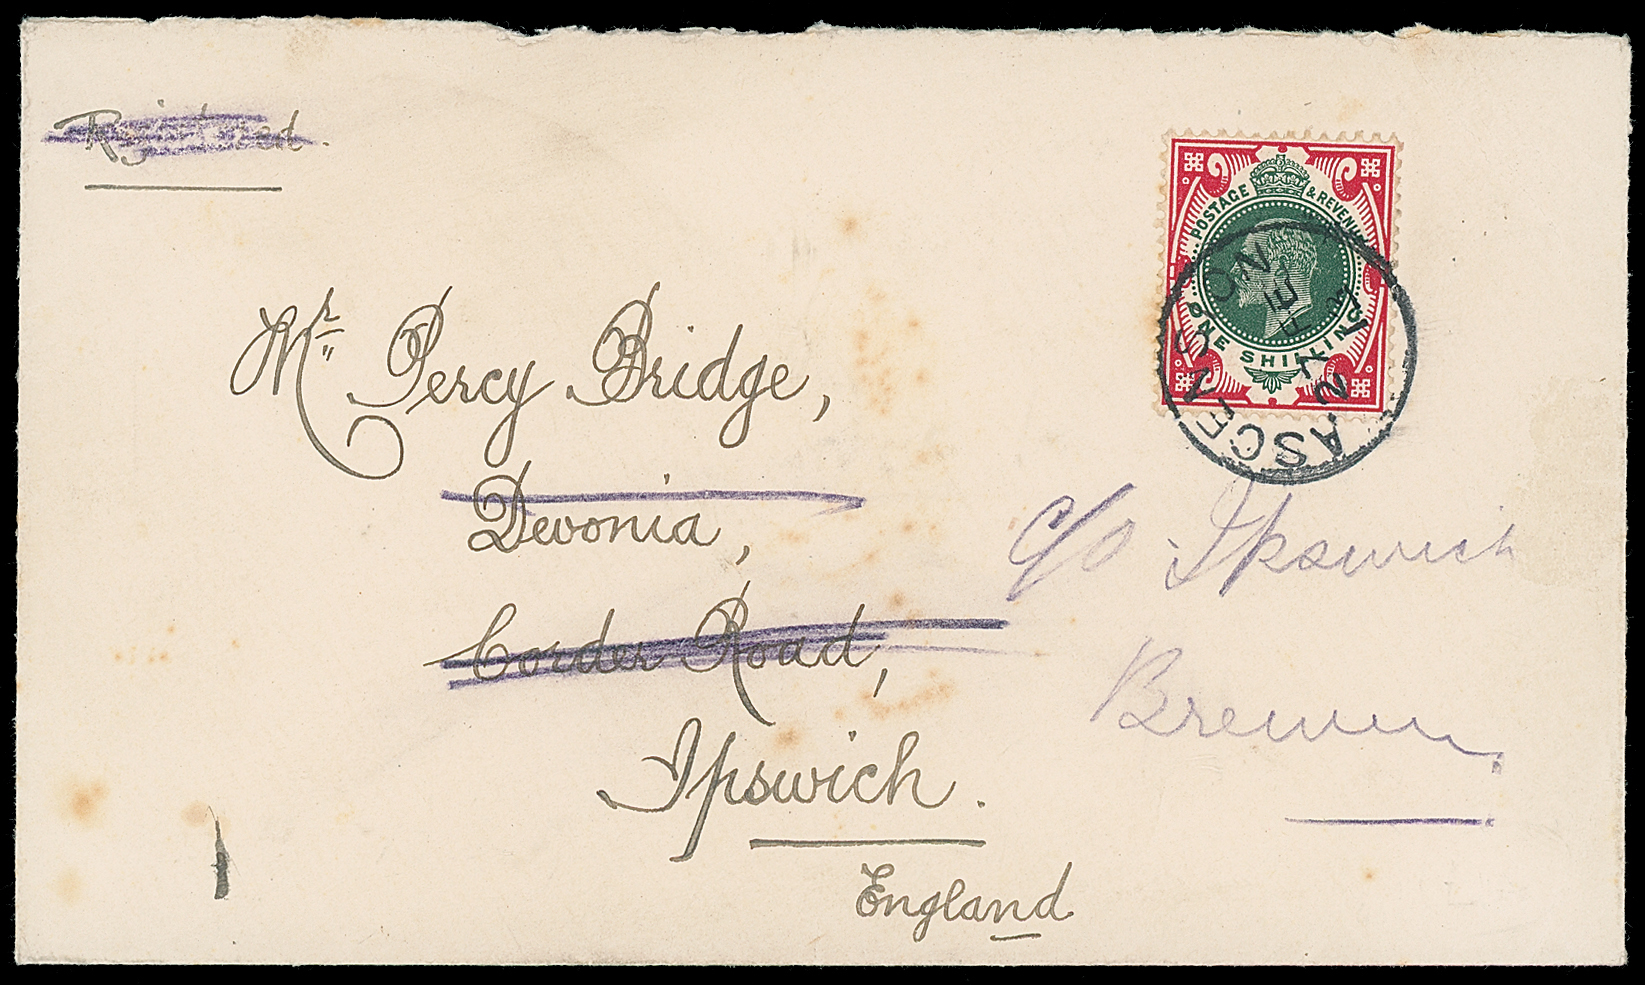 Registered.
POSTAGE & REVENUE
ONE SHILLING
ASCENSION
FE
12
Mr. Percy Bridge,
Devonia,
Corder Road,
Ipswich.
England
c/o Ipswich
Brewery